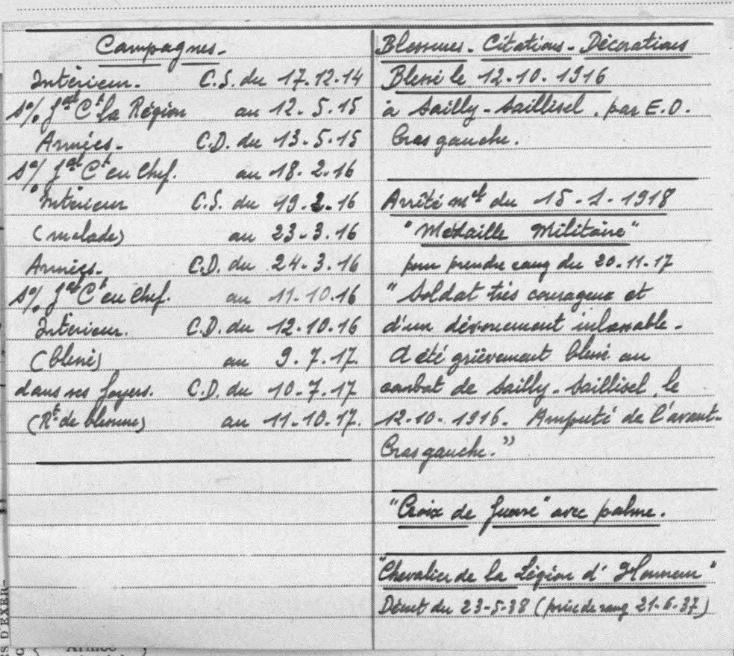 Campagnes.
Intérieur. C.S. du 17.12.14
s/o gal Ct la Région au 12.5.15
Armées. C.D. du 13.5.15
s/o gal Ct en Chef. au 18.2.16
Intérieur C.S. du 19.2.16
(malade) au 23.3.16
Armées. C.D. du 24.3.16
s/o gal Ct en Chef. au 11.10.16
Intérieur. C.D. du 12.10.16
(blessé) au 9.7.17.
dans ses foyers. C.D. du 10.7.17
(Rt de blessure) au 11.10.17.
Blessures - Citations - Décorations
Blessé le 12.10.1916
à Sailly-Saillisel, par E.O.
bras gauche.
Arrêté mel du 15-2-1918
"Médaille Militaire"
pour prendre rang du 20.11.17
"Soldat très courageux et
d'un dévouement inlassable.
A été grièvement blessé au
combat de Sailly-Saillisel, le
12.10.1916. Amputé de l'avant-
bras gauche."
"Croix de Guerre" avec palme.
"Chevalier de la Légion d'Honneur"
Décret du 23-5-38 (prise de rang 21-6-37)